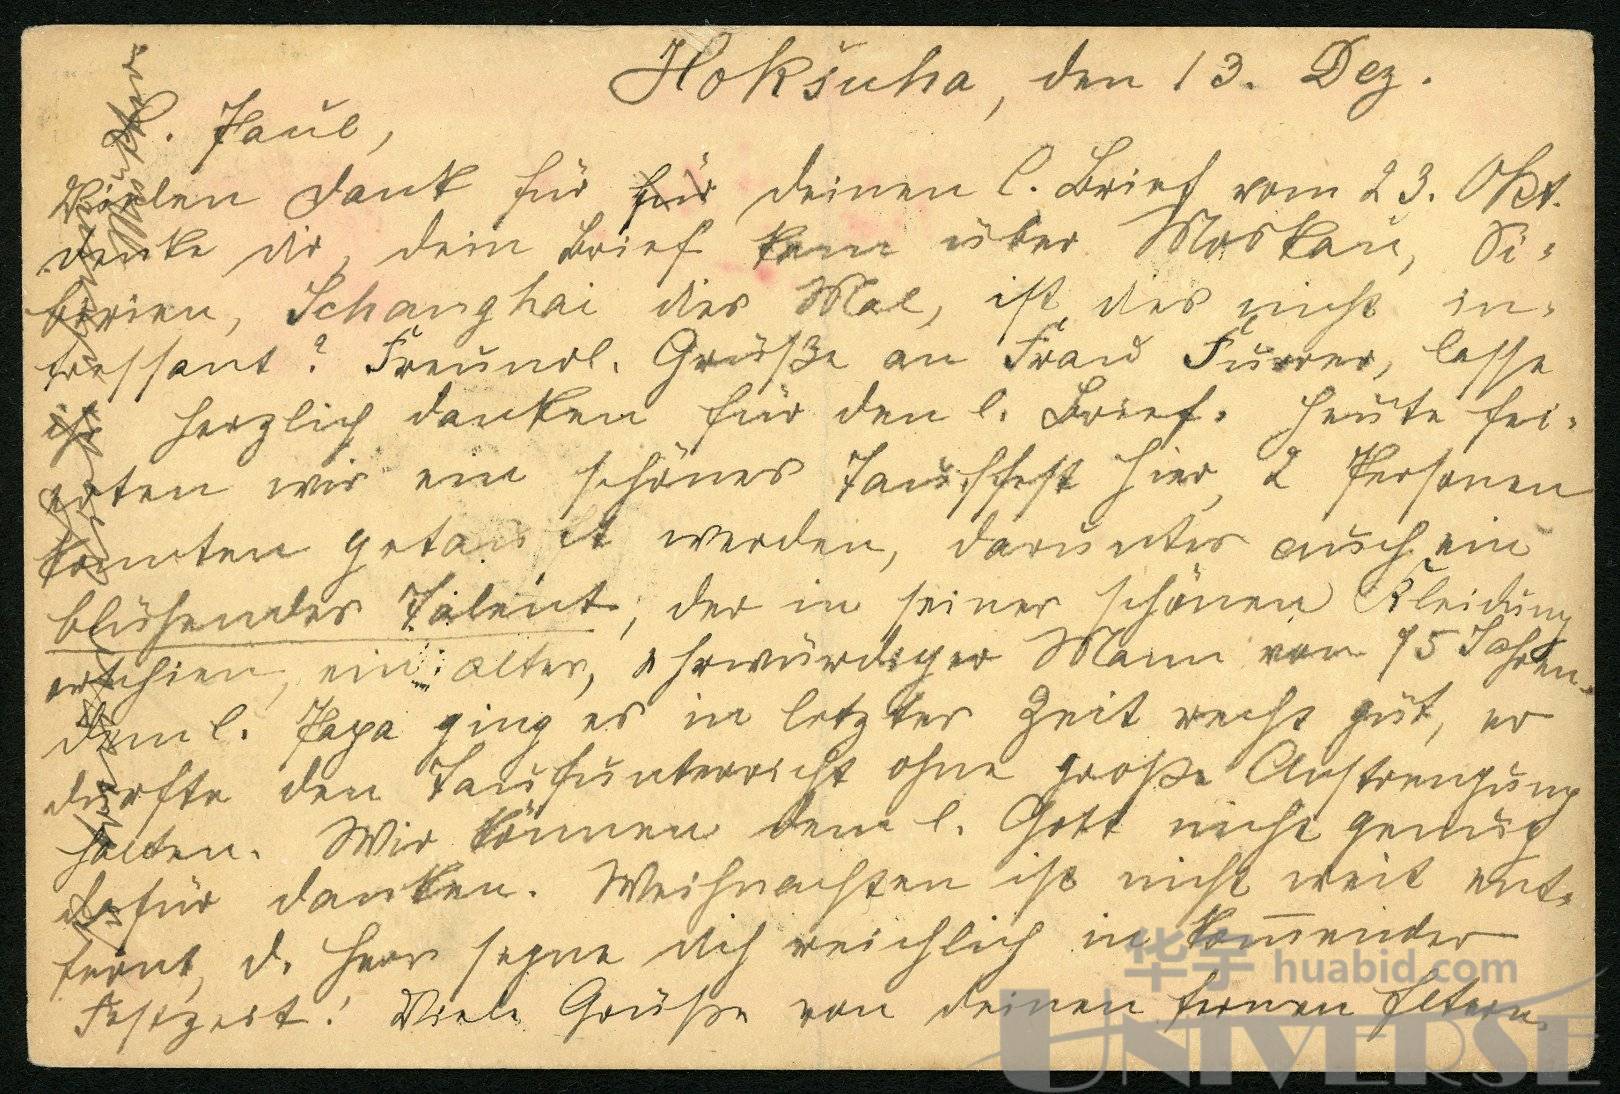 Hokšuha, den 13. Dez.
L. Paul,
Vielen Dank für für deinen l. Brief vom 23. Okt.
denke dir, dein Brief kam über Moskau, Si-
birien, Schanghai dies Mal, ist dies nicht in-
tressant? Freundl. Grüße an Frau Furrer, lasse
ihr herzlich danken für den l. Brief. Heute fei-
erten wir ein schönes Tauffest hier, 2 Personen
konnten getauft werden, darunter auch ein
blühendes Talent, der in seiner schönen Kleidung
erschien, ein alter, ehrwürdiger Mann von 75 Jahren.
Dem l. Papa ging es in letzter Zeit recht gut, er
durfte den Taufunterricht ohne große Anstrengung
halten. Wir können dem l. Gott nicht genug
dafür danken. Weihnachten ist nicht weit ent-
fernt, d. Herr segne dich reichlich in kom̅ender
Festzeit! Viele Grüße von deinen fernen Eltern.
华宇 huabid.com
UNIVERSE